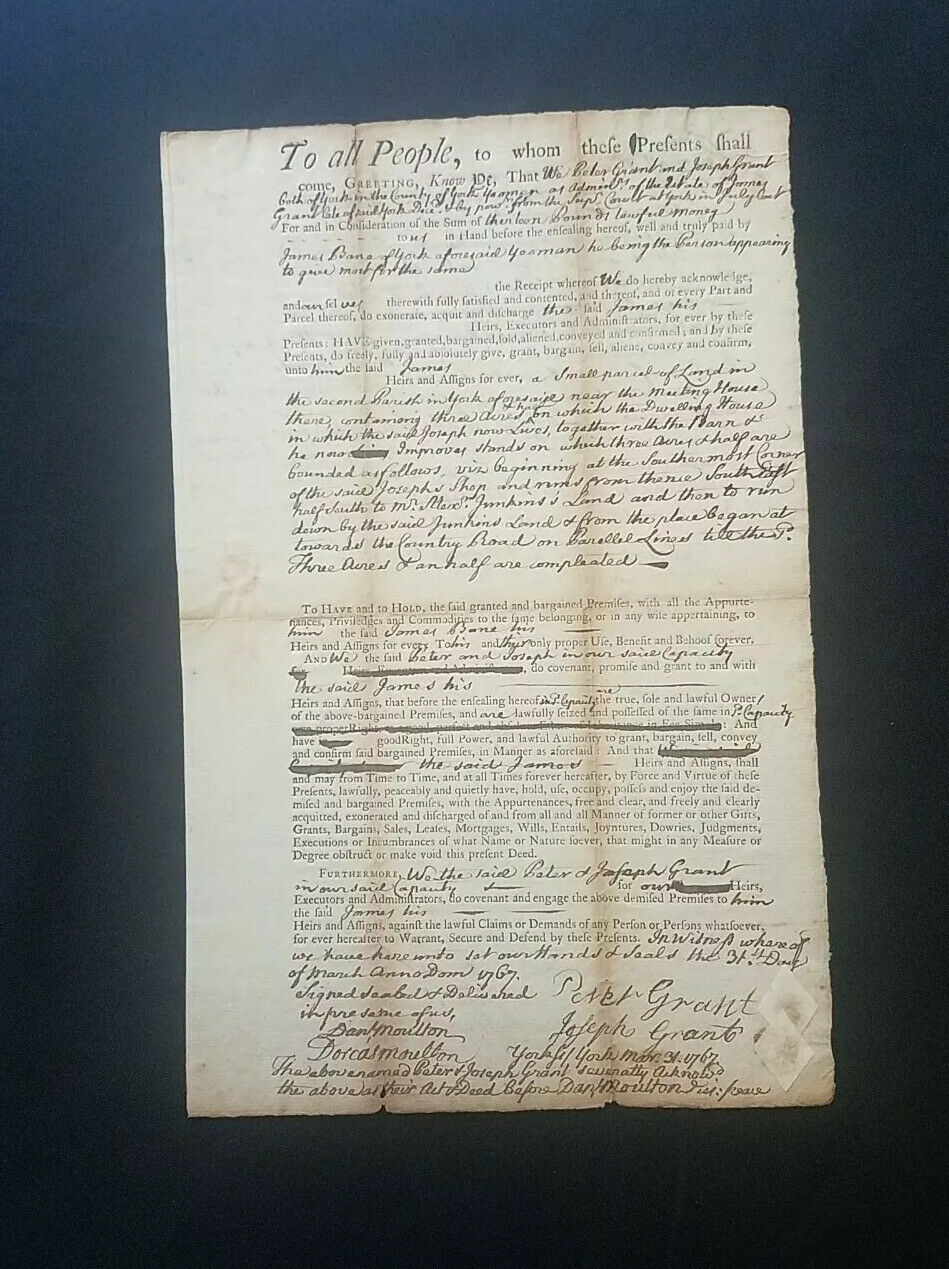 To all People, to whom these Presents shall
come, GREETING, Know Ye, That We Peter Grant and Joseph Grant
both of York in the County of York Yeomen as Adminrs of the Estate of James
Grant late of said York Decd & by powr from the Supr Court at York in July last
For and in Consideration of the Sum of thirteen Pounds lawful money
to us in Hand before the ensealing hereof, well and truly paid by
James Bane of York aforesaid Yeoman he being the Person appearing
to give most for the same
the Receipt whereof We do hereby acknowledge,
and ourselves therewith fully satisfied and contented, and thereof, and of every Part and
Parcel thereof, do exonerate, acquit and discharge the said James his
Heirs, Executors and Administrators, for ever by these
Presents: HAVE given, granted, bargained, sold, aliened, conveyed and confirmed; and by these
Presents, do freely, fully and absolutely give, grant, bargain, sell, aliene, convey and confirm,
unto him the said James
Heirs and Assigns for ever, a Small parcel of Land in
the second Parish in York aforesaid near the Meeting House
there, containing three Acres & half on which the Dwelling House
in which the said Joseph now Lives, together with the Barn &c
he now Improves stands on which three Acres & half are
bounded as follows, viz beginning at the Southermost Corner
of the said Josephs Shop and runs from thence South East
half South to Mr. Alexr. Junkins's Land and then to run
down by the said Junkins Land & from the place began at
towards the Country Road on Parellel Lines till the sd
Three Acres & an half are compleated
TO HAVE and to HOLD, the said granted and bargained Premises, with all the Appurte-
nances, Priviledges and Commodities to the same belonging, or in any wise appertaining, to
him the said James Bane his
Heirs and Assigns for ever, To his and their only proper Use, Benefit and Behoof forever.
AND We the said Peter and Joseph in our said Capacity
for Heirs, Executors and Administrators, do covenant, promise and grant to and with
the said James his
Heirs and Assigns, that before the ensealing hereof in sd Capacity are the true, sole and lawful Owner
of the above-bargained Premises, and are lawfully seized and possessed of the same in sd Capacity
: And
have good Right, full Power, and lawful Authority to grant, bargain, sell, convey
and confirm said bargained Premises, in Manner as aforesaid: And that
the said James Heirs and Assigns, shall
and may from Time to Time, and at all Times forever hereafter, by Force and Virtue of these
Presents, lawfully, peaceably and quietly have, hold, use, occupy, possess and enjoy the said de-
mised and bargained Premises, with the Appurtenances, free and clear, and freely and clearly
acquitted, exonerated and discharged of and from all and all Manner of former or other Gifts,
Grants, Bargains, Sales, Leases, Mortgages, Wills, Entails, Joyntures, Dowries, Judgments,
Executions or Incumbrances of what Name or Nature soever, that might in any Measure or
Degree obstruct or make void this present Deed.
FURTHERMORE, We the said Peter & Joseph Grant
in our said Capacity for our Heirs,
Executors and Administrators, do covenant and engage the above demised Premises to him
the said James his
Heirs and Assigns, against the lawful Claims or Demands of any Person or Persons whatsoever,
for ever hereafter to Warrant, Secure and Defend by these Presents. In Witness whereof
we have hereunto set our Hands & Seals the 31st Day
of March Anno Dom 1767.
Signed sealed & Delivered
in presence of us,
Peter Grant
Danl Moulton
Joseph Grant
Dorcas Moulton
York ss York Mar. 31. 1767
The above named Peter & Joseph Grant severally Acknowd
the above as their Act & Deed Before Danl Moulton Jus: peace